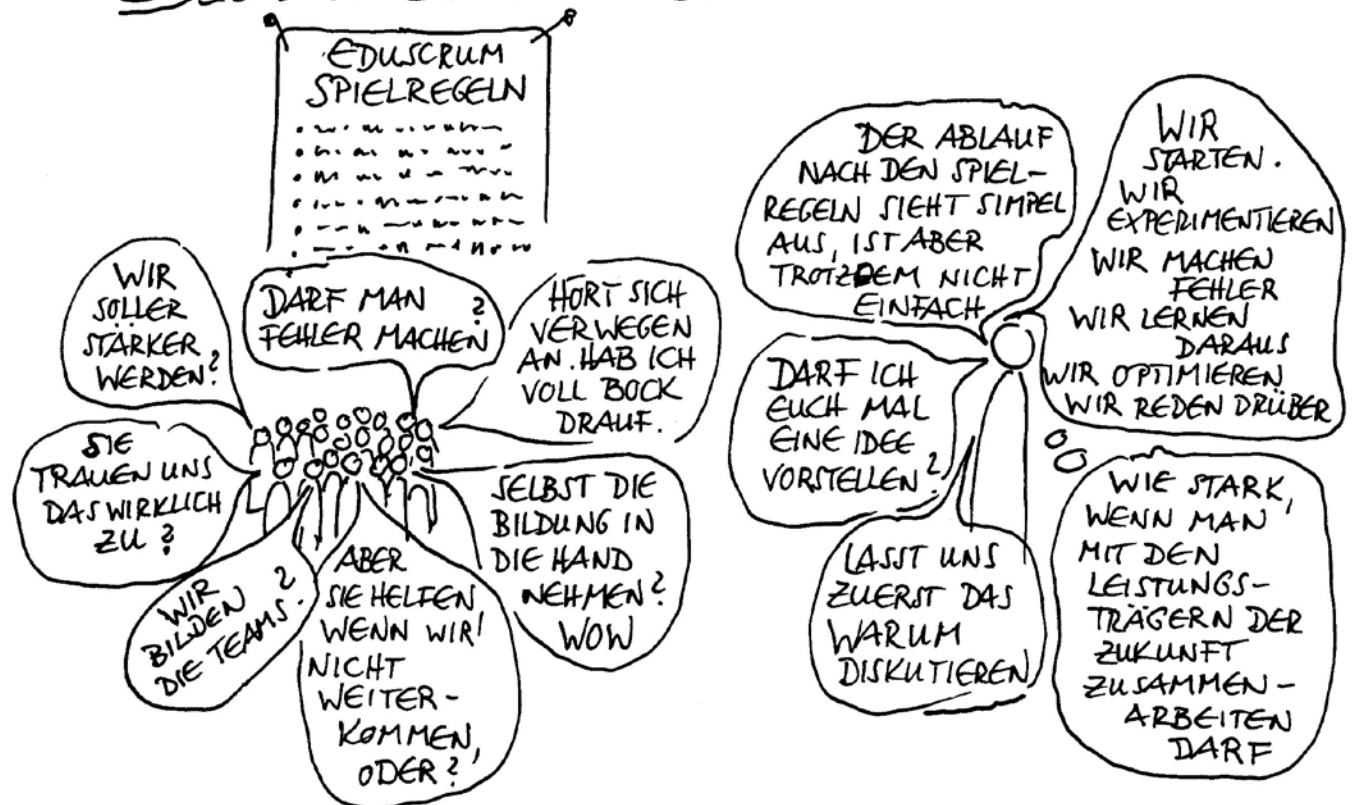 EDUSCRUM
SPIELREGELN
WIR
SOLLER
STÄRKER
WERDEN?
DARF MAN
FEHLER MACHEN?
HÖRT SICH
VERWEGEN
AN. HAB ICH
VOLL BOCK
DRAUF.
SIE
TRAUEN UNS
DAS WIRKLICH
ZU?
WIR
BILDEN
DIE TEAMS?
ABER
SIE HELFEN
WENN WIR
NICHT
WEITER-
KOMMEN,
ODER?
SELBST DIE
BILDUNG IN
DIE HAND
NEHMEN?
WOW
DER ABLAUF
NACH DEN SPIEL-
REGELN SIEHT SIMPEL
AUS, IST ABER
TROTZDEM NICHT
EINFACH
WIR
STARTEN.
WIR
EXPERIMENTIEREN
WIR MACHEN
FEHLER
WIR LERNEN
DARAUS
WIR OPTIMIEREN
WIR REDEN DRÜBER
DARF ICH
EUCH MAL
EINE IDEE
VORSTELLEN?
LASST UNS
ZUERST DAS
WARUM
DISKUTIEREN
WIE STARK,
WENN MAN
MIT DEN
LEISTUNGS-
TRÄGERN DER
ZUKUNFT
ZUSAMMEN-
ARBEITEN
DARF